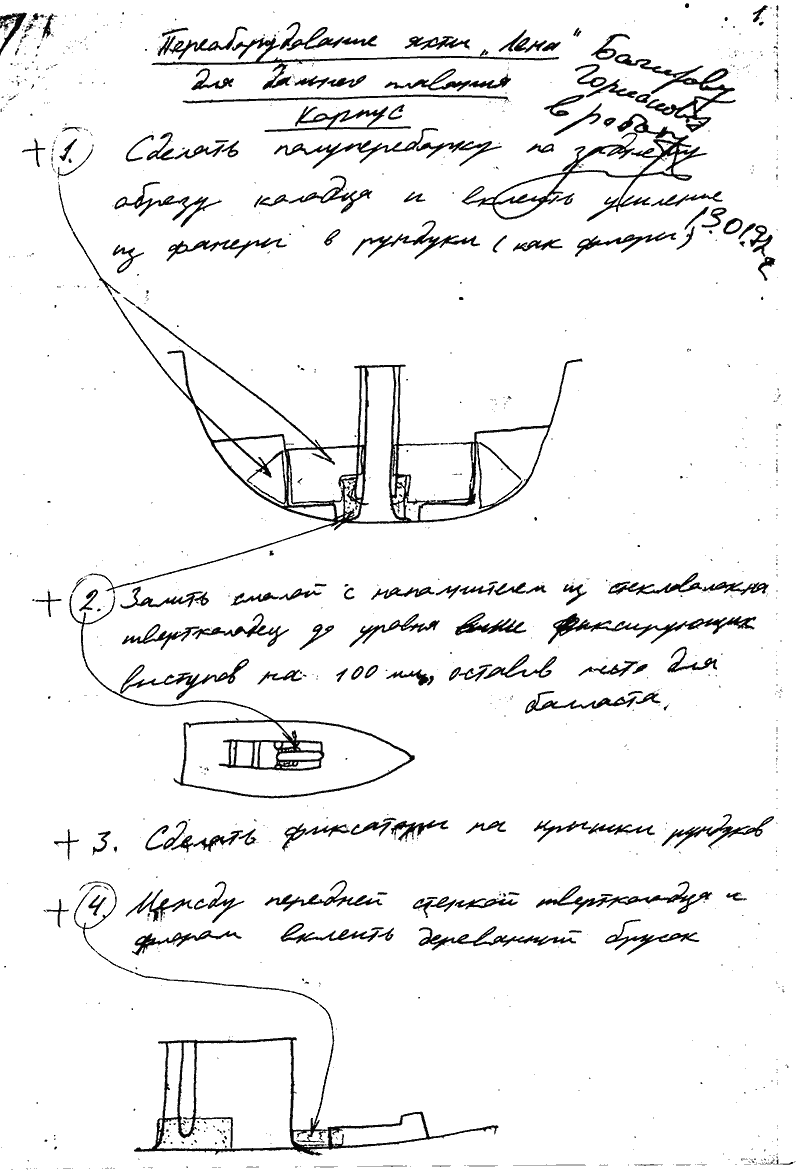 1.
Переоборудование яхты „Лена“
для дальнего плавания
Корпус
Багирову
в работу
+ 1. Сделать полупереборку по заднему
обрезу колодца и вклеить усиление
из фанеры в рундуки (как флоры)
+ 2. Залить смолой с наполнителем из стекловолокна
твертколодец до уровня выше фиксирующих
выступов на 100 мм, оставив место для
балласта.
+ 3. Сделать фиксаторы на крышки рундуков
+ 4. Между передней стенкой твертколодца и
флором вклеить деревянный брусок